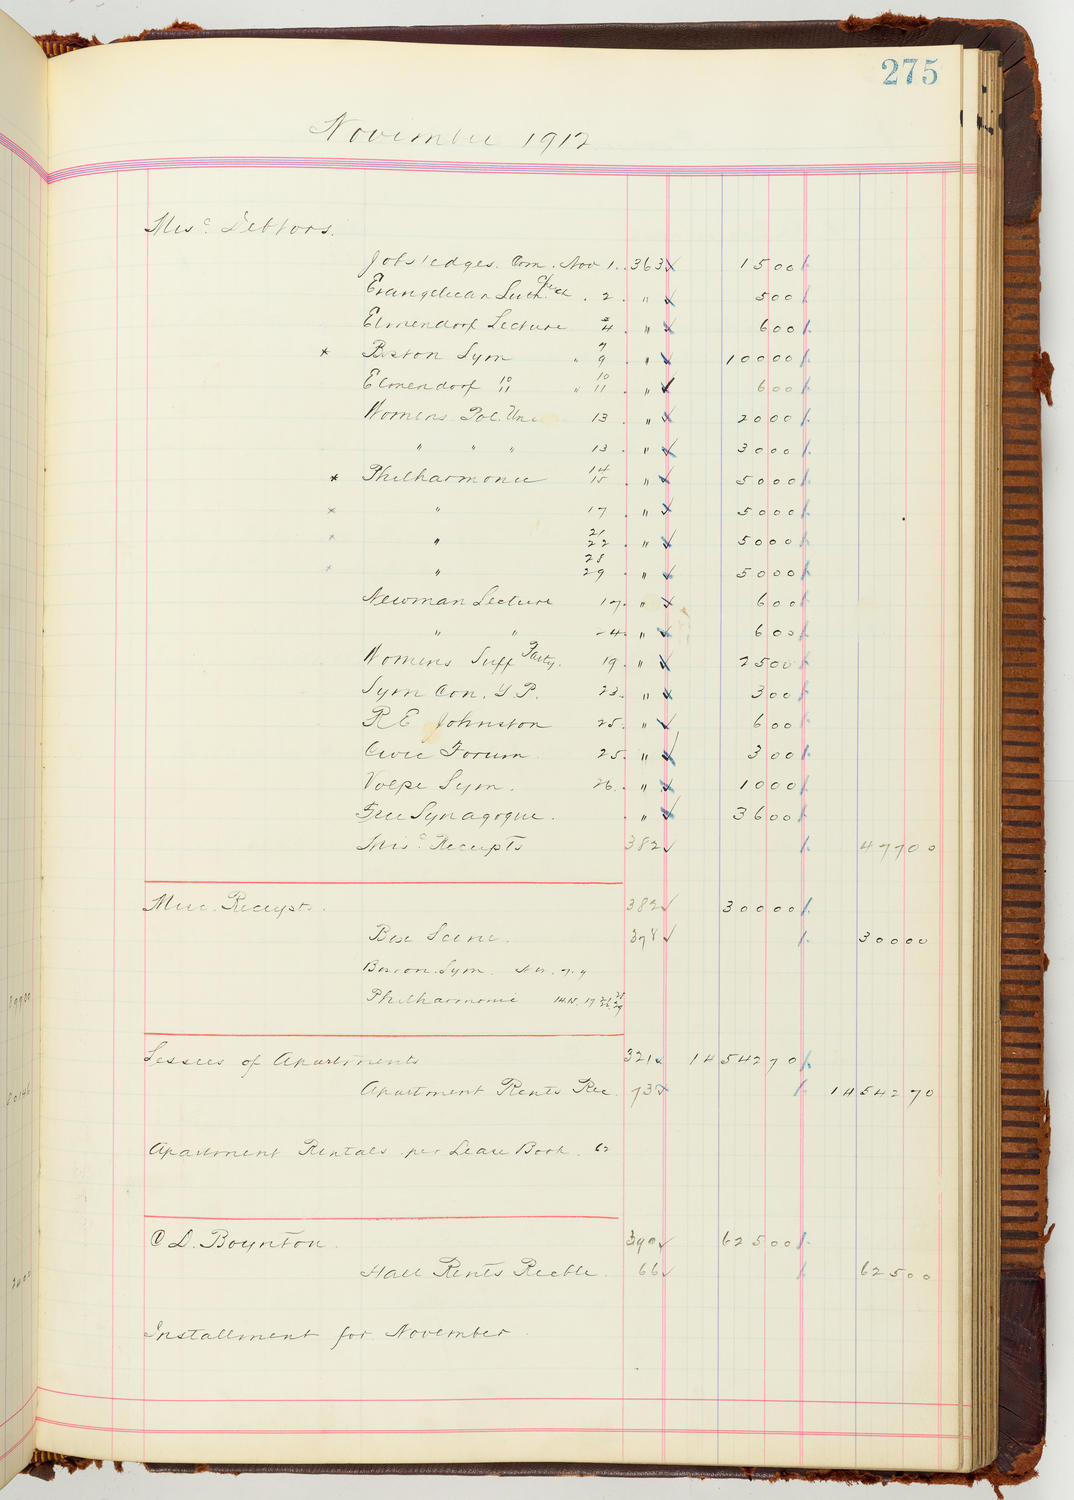 275
November 1912
Misc. Debtors.
Com. Nov 1. 363 1500
Evangelical Luth. Church. 2. " 500
Elmendorf Lecture 3 4. " 600
* Boston Sym " 7 9. " 10000
Elmendorf 10 11 " 10 11. " 600
Womens Pol. Un. 13 " 2000
" " " 13. " 3000
* Philharmonic 14 15. " 5000
* " 17 " 5000
* " 21 22. " 5000
* " 28 29. " 5000
Newman Lecture 17. " 600
" " 24. " 600
Womens Suff Party. 19. " 2500
Sym Con. Y P. 23. " 300
R E Johnston 25. " 600
Civic Forum 25. " 300
Volpe Sym. 26. " 1000
Free Synagogue. " 3600
Misc. Receipts 382 47700
Misc. Receipts. 382 30000
Box Scene. 378 30000
Boston Sym. Nov. 7. 9
Philharmonic 14 15, 17 21 22 28 29
Lessees of Apartments 321 1454270
Apartment Rents Rec. 73 1454270
Apartment Rentals per Lease Book. 62
C D. Boynton 390 62500
Hall Rents Recble. 66 62500
Installment for November